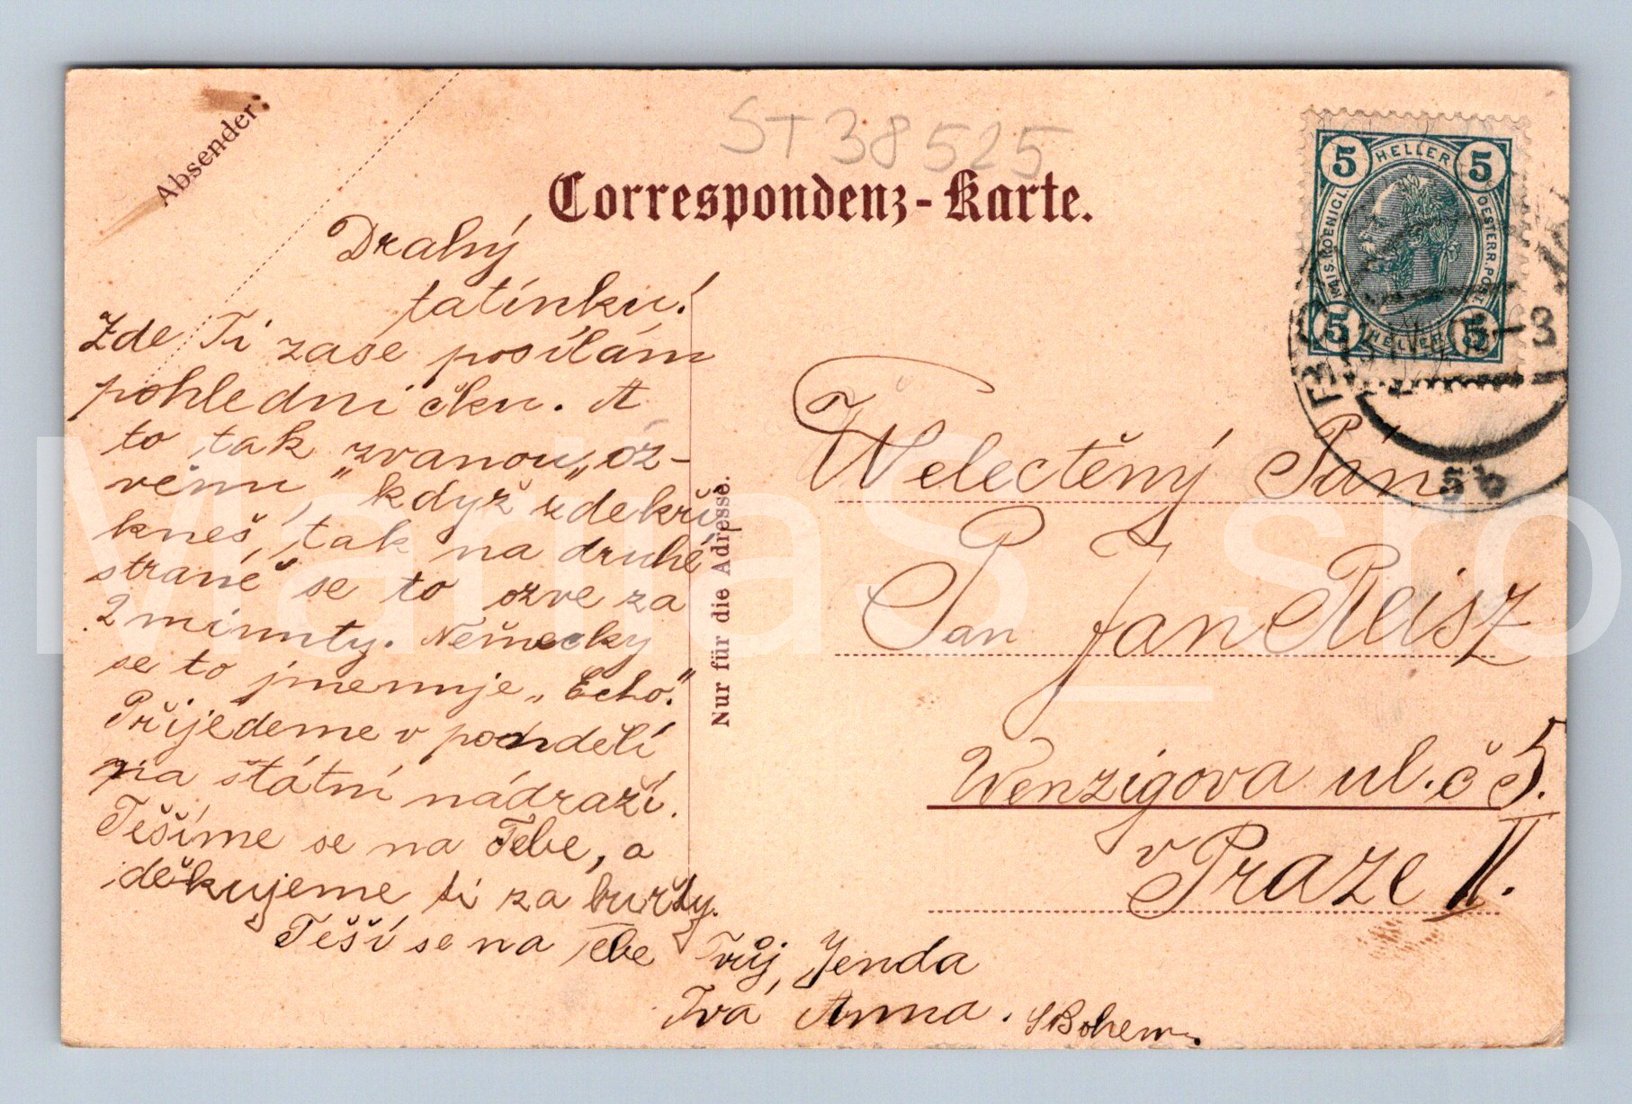 Absender:
ST 38525
Correspondenz-Karte.
5 HELLER 5
KAIS. KOENIGL.
OESTERR. POST
5 HELLER 5
3
5b
Drahý
tatínku!
Zde Ti zase posílám
pohledničku. A
to tak zvanou „oz-
věnu", když zde kři
kneš, tak na druhé
straně se to ozve za
2 minuty. Německy
se to jmenuje „Echo."
Přijedeme v pondělí
na státní nádraží.
Těšíme se na Tebe, a
děkujeme ti za buřty.
Těší se na Tebe Tvůj Jenda
Tvá Anna. S Bohem.
Nur für die Adresse.
Welectěný Pán
Pan Jan Reisz
Wenzigova ul. č 5.
v Praze II.
MartiaS_sro